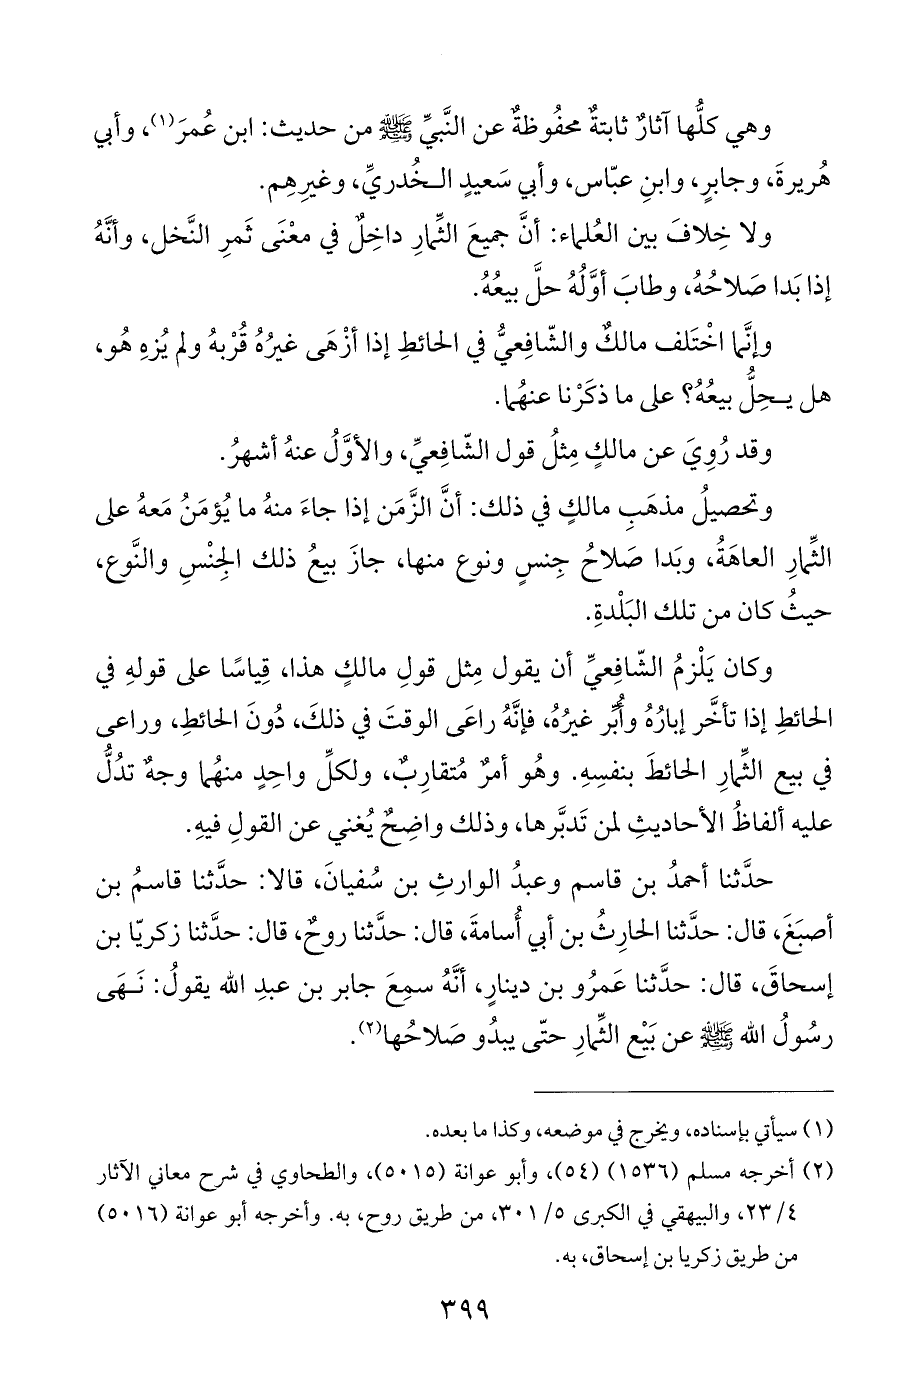 وهي كلُّها آثارٌ ثابتةٌ محفُوظةٌ عن النَّبيِّ ﷺ من حديث: ابن عُمرَ(١)، وأبي
هُريرةَ، وجابرٍ، وابنِ عبّاس، وأبي سَعيدٍ الخُدريِّ، وغيرِهِم.
ولا خِلافَ بين العُلماء: أنَّ جميعَ الثِّمارِ داخِلٌ في معْنَى ثَمرِ النَّخل، وأنَّهُ
إذا بَدا صَلاحُهُ، وطابَ أوَّلُهُ حلَّ بيعُهُ.
وإنَّما اخْتَلف مالكٌ والشّافِعيُّ في الحائطِ إذا أزْهَى غيرُهُ قُرْبهُ ولم يُزهِ هُو،
هل يحِلُّ بيعُهُ؟ على ما ذكَرْنا عنهُما.
وقد رُوِيَ عن مالكٍ مِثلُ قول الشّافِعيِّ، والأوَّلُ عنهُ أشهرُ.
وتحصيلُ مذهَبِ مالكٍ في ذلك: أنَّ الزَّمَن إذا جاءَ منهُ ما يُؤمَنُ مَعهُ على
الثِّمارِ العاهَةُ، وبَدا صَلاحُ جِنسٍ ونوع منها، جازَ بيعُ ذلك الجِنْسِ والنَّوع،
حيثُ كان من تلك البَلْدةِ.
وكان يَلْزمُ الشّافِعيِّ أن يقول مِثل قولِ مالكٍ هذا، قِياسًا على قولهِ في
الحائطِ إذا تأخَّر إبارُهُ وأُبِّر غيرُهُ، فإنَّهُ راعَى الوقتَ في ذلكَ، دُونَ الحائطِ، وراعى
في بيع الثِّمارِ الحائطَ بنفسِهِ. وهُو أمرٌ مُتقارِبٌ، ولكلِّ واحِدٍ منهُما وجهٌ تدُلُّ
عليه ألفاظُ الأحاديثِ لمن تَدبَّرها، وذلك واضِحٌ يُغني عن القولِ فيهِ.
حدَّثنا أحمدُ بن قاسم وعبدُ الوارثِ بن سُفيانَ، قالا: حدَّثنا قاسمُ بن
أصبَغَ، قال: حدَّثنا الحارِثُ بن أبي أُسامةَ، قال: حدَّثنا روحٌ، قال: حدَّثنا زكريّا بن
إسحاقَ، قال: حدَّثنا عَمرُو بن دينارٍ، أنَّهُ سمِعَ جابر بن عبدِ الله يقولُ: نَهَى
رسُولُ الله ﷺ عن بَيْع الثِّمارِ حتّى يبدُو صَلاحُها(٢).
(١) سيأتي بإسناده، ويخرج في موضعه، وكذا ما بعده.
(٢) أخرجه مسلم (١٥٣٦) (٥٤)، وأبو عوانة (٥٠١٥)، والطحاوي في شرح معاني الآثار
٤/ ٢٣، والبيهقي في الكبرى ٥/ ٣٠١، من طريق روح، به. وأخرجه أبو عوانة (٥٠١٦)
من طريق زكريا بن إسحاق، به.
٣٩٩